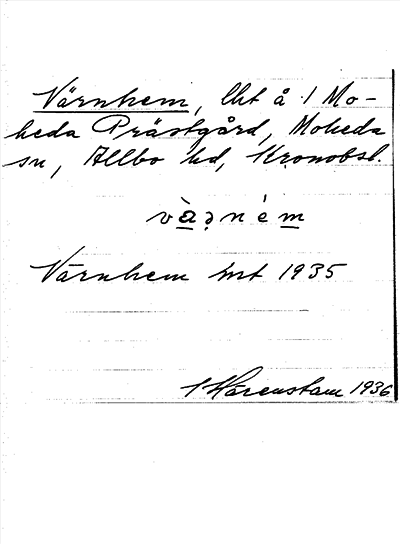 Värnhem, lht å 1 Mo-
heda Prästgård, Moheda
sn, Allbo hd, Kronobsl.
và̱ꝛṇém̱
Värnhem hrt 1935
Härenstam 1936